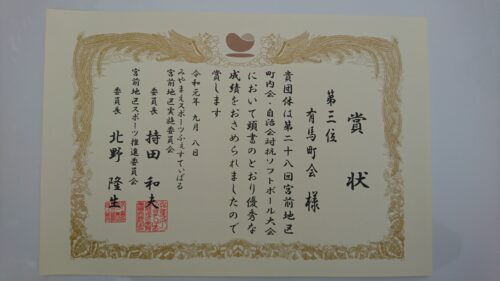 賞状
第三位
有馬町会 様
貴団体は第二十八回宮前地区
町内会・自治会対抗ソフトボール大会
において頭書のとおり優秀な
成績をおさめられましたので
賞します
令和元年 九月 八日
みやまえスポーツふぇすてぃばる
宮前地区実施委員会
委員長 持田 和夫
宮前地区スポーツ推進委員会
委員長 北野 隆生